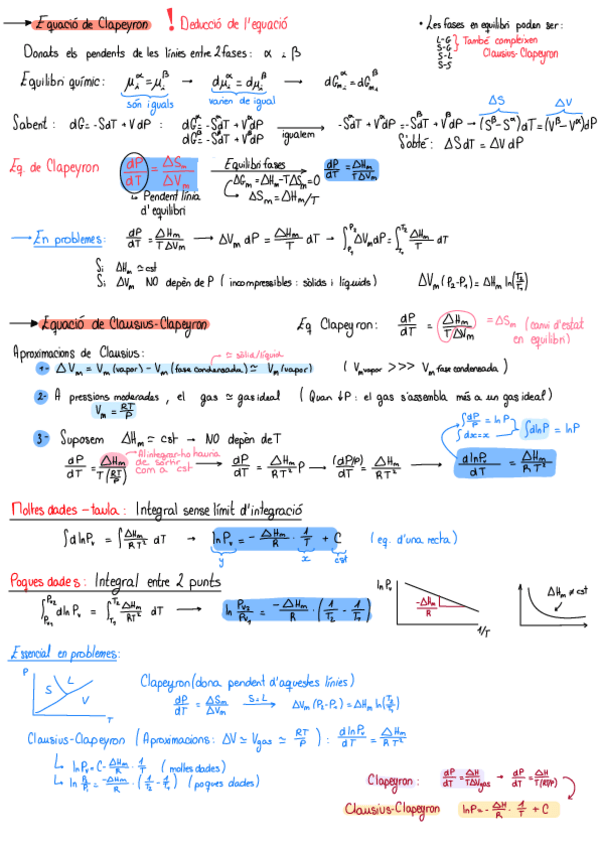 → Equació de Clapeyron ! Deducció de l'equació
• Les fases en equilibri poden ser:
L-G
S-G
S-L
S-S
També compleixen
Clausius-Clapeyron
Donats els pendents de les línies entre 2 fases: α i β
Equilibri químic: μᵢ^α = μᵢ^β → dμᵢ^α = dμᵢ^β → dG_m,i^α = dG_m,i^β
són iguals
varien de igual
ΔS ΔV
Sabent: dG = -SdT + VdP : dG^α = -S^αdT + V^αdP
dG^β = -S^βdT + V^βdP
igualem
→ -S^αdT + V^αdP = -S^βdT + V^βdP → (S^β - S^α)dT = (V^β - V^α)dP
S'obté: ΔSdT = ΔVdP
Eq. de Clapeyron dP/dT = ΔSm/ΔVm Equilibri fases → dP/dT = ΔHm/TΔVm
ΔGm = ΔHm - TΔSm = 0
↳ ΔSm = ΔHm/T
↳ Pendent línia
d'equilibri
→ En problemes: dP/dT = ΔHm/TΔVm → ΔVm dP = ΔHm/T dT → ∫_P₁^P₂ ΔVm dP = ∫_T₁^T₂ ΔHm/T dT
Si ΔHm ≃ cst
Si ΔVm NO depèn de P (incompressibles: sòlids i líquids) ΔVm (P₂-P₁) = ΔHm ln(T₂/T₁)
→ Equació de Clausius-Clapeyron
Eq Clapeyron: dP/dT = ΔHm/TΔVm = ΔSm (canvi d'estat
en equilibri)
Aproximacions de Clausius:
≃ sòlid/líquid
1- ΔVm = Vm (vapor) - Vm (fase condensada) ≃ Vm (vapor) (Vm vapor >>> Vm fase condensada)
2- A pressions moderades, el gas ≃ gas ideal (Quan ↓P: el gas s'assembla més a un gas ideal)
Vm = RT/P
3- Suposem ΔHm ≃ cst → NO depèn de T
∫dP/P = lnP
∫dx = x
∫dlnP = lnP
dP/dT = ΔHm/T(RT/P) → dP/dT = ΔHm/RT² P → (dP/P)/dT = ΔHm/RT² → dlnPv/dT = ΔHm/RT²
Al integrar-ho hauria
de sortir
com a cst
Moltes dades - taula: Integral sense límit d'integració
∫dlnPv = ∫ΔHm/RT² dT → lnPv = -ΔHm/R · 1/T + C (eq. d'una recta)
y x cst
Poques dades: Integral entre 2 punts
∫_Pv₁^Pv₂ dlnPv = ∫_T₁^T₂ ΔHm/RT² dT → ln Pv₂/Pv₁ = -ΔHm/R · (1/T₂ - 1/T₁)
lnPv
-ΔHm/R
1/T
ΔHm ≠ cst
Essencial en problemes:
P
S L
V
T
Clapeyron (dona pendent d'aquestes línies)
dP/dT = ΔSm/ΔVm S=L → ΔVm (P₂-P₁) = ΔHm ln(T₂/T₁)
Clausius-Clapeyron (Aproximacions: ΔV ≃ Vgas ≃ RT/P): dlnP/dT = ΔHm/RT²
↳ lnPv = C - ΔHm/R · 1/T (moltes dades)
↳ ln P₂/P₁ = -ΔHm/R · (1/T₂ - 1/T₁) (poques dades)
Clapeyron: dP/dT = ΔH/TΔVgas → dP/dT = ΔH/T(RT/P)
Clausius-Clapeyron lnP = -ΔH/R · 1/T + C